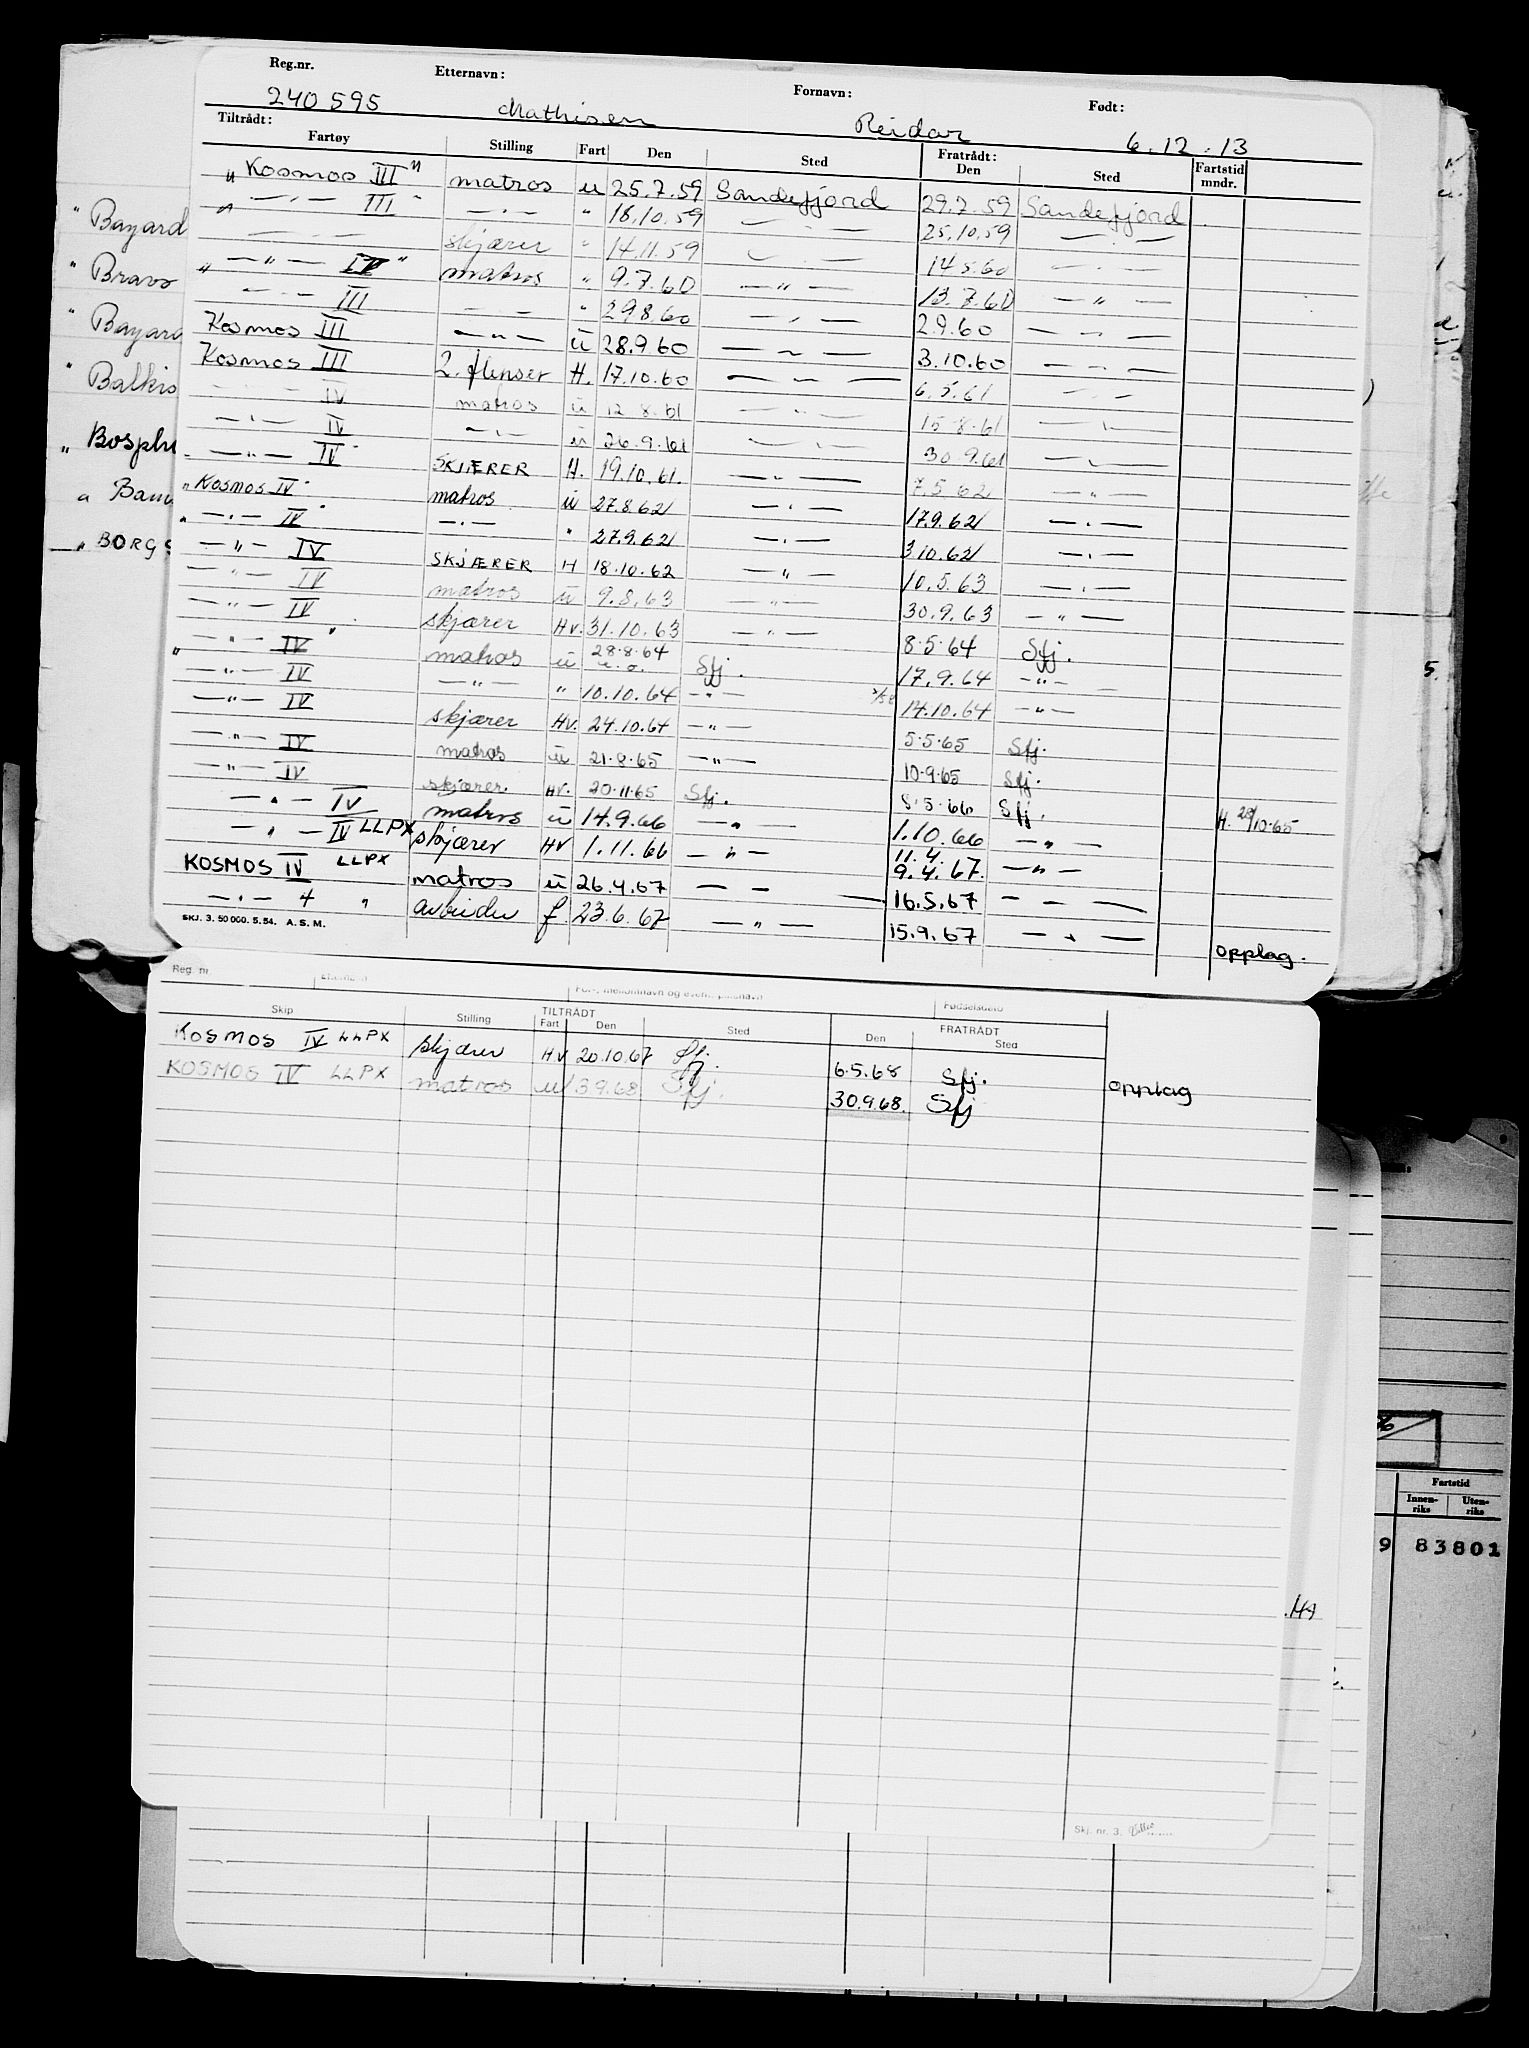 Reg.nr. Etternavn: Fornavn: Født:
240595 Mathisen Reidar 6.12.13
Tiltrådt: Fratrådt:
Fartøy Stilling Fart Den Sted Den Sted Fartstid mndr.
"Kosmos III" matros u 25.7.59 Sandefjord 29.7.59 Sandefjord
" — " — III " — " — " 16.10.59 — " — 25.10.59 — " —
— " — skjærer " 14.11.59 — " — 14.5.60 — " —
" — " — IV " matros " 9.7.60 — " — 13.7.60 — " —
— " — III — " — " 29.8.60 — " — 2.9.60 — " —
Kosmos III — " — u 28.9.60 — " — 3.10.60 — " —
Kosmos III 2. flenser H. 17.10.60 — " — 6.5.61 — " —
— " — IV matros u 12.8.61 — " — 15.8.61 — " —
— " — IV — " — u 26.9.61 — " — 30.9.61 — " —
— " — IV SKJÆRER H. 19.10.61. — " — 7.5.62 — " —
"Kosmos IV" matros u 27.8.62 — " — 17.9.62 — " —
" — " — IV " — " — " 27.9.62 — " — 3.10.62 — " —
— " — IV SKJÆRER H 18.10.62 — " — 10.5.63 — " —
— " — IV matros u 9.8.63 — " — 30.9.63 — " —
— " — IV skjærer Hv. 31.10.63 — " — 8.5.64 Sfj.
" — " — IV " matros u 28.8.64 Sfj. 17.9.64 — " —
— " — IV — " — " 10.10.64 — " — 14.10.64 — " —
— " — IV skjærer Hv. 24.10.64 — " — 5.5.65 Sfj.
— " — IV matros u 21.8.65 — " — 10.9.65 Sfj.
— " — IV skjærer. HV. 20.11.65 Sfj. 5.5.66 Sfj. H. 28/10.65
— " — IV matros u 14.9.66 — " — 1.10.66 — " —
— " — IV LLPX skjærer HV 1.11.66 — " — 11.4. 9.4.67. — " —
KOSMOS IV LLPX matros u 26.4.67 — — 16.5.67 — — —
— " — 4 " arbeider f. 23.6.67 — " — 15.9.67 — " — opplag.
SKJ. 3. 50 000. 5.54. A.S.M.
"Bayard
"Bravo
"Bayard
"Balkis
"Bosph
"BORGS
Reg. nr. Fødselsdato
Skip Stilling TILTRÅDT Fart Den Sted FRATRÅDT Den Sted
KOSMOS IV LLPX skjærer HV 20.10.67 Sfj. 6.5.68 Sfj. opplag
KOSMOS IV LLPX matros u 3.9.68 Sfj. 30.9.68. Sfj
Skj. nr. 3.
Fartstid
Innen-riks Uten-riks
9 83801